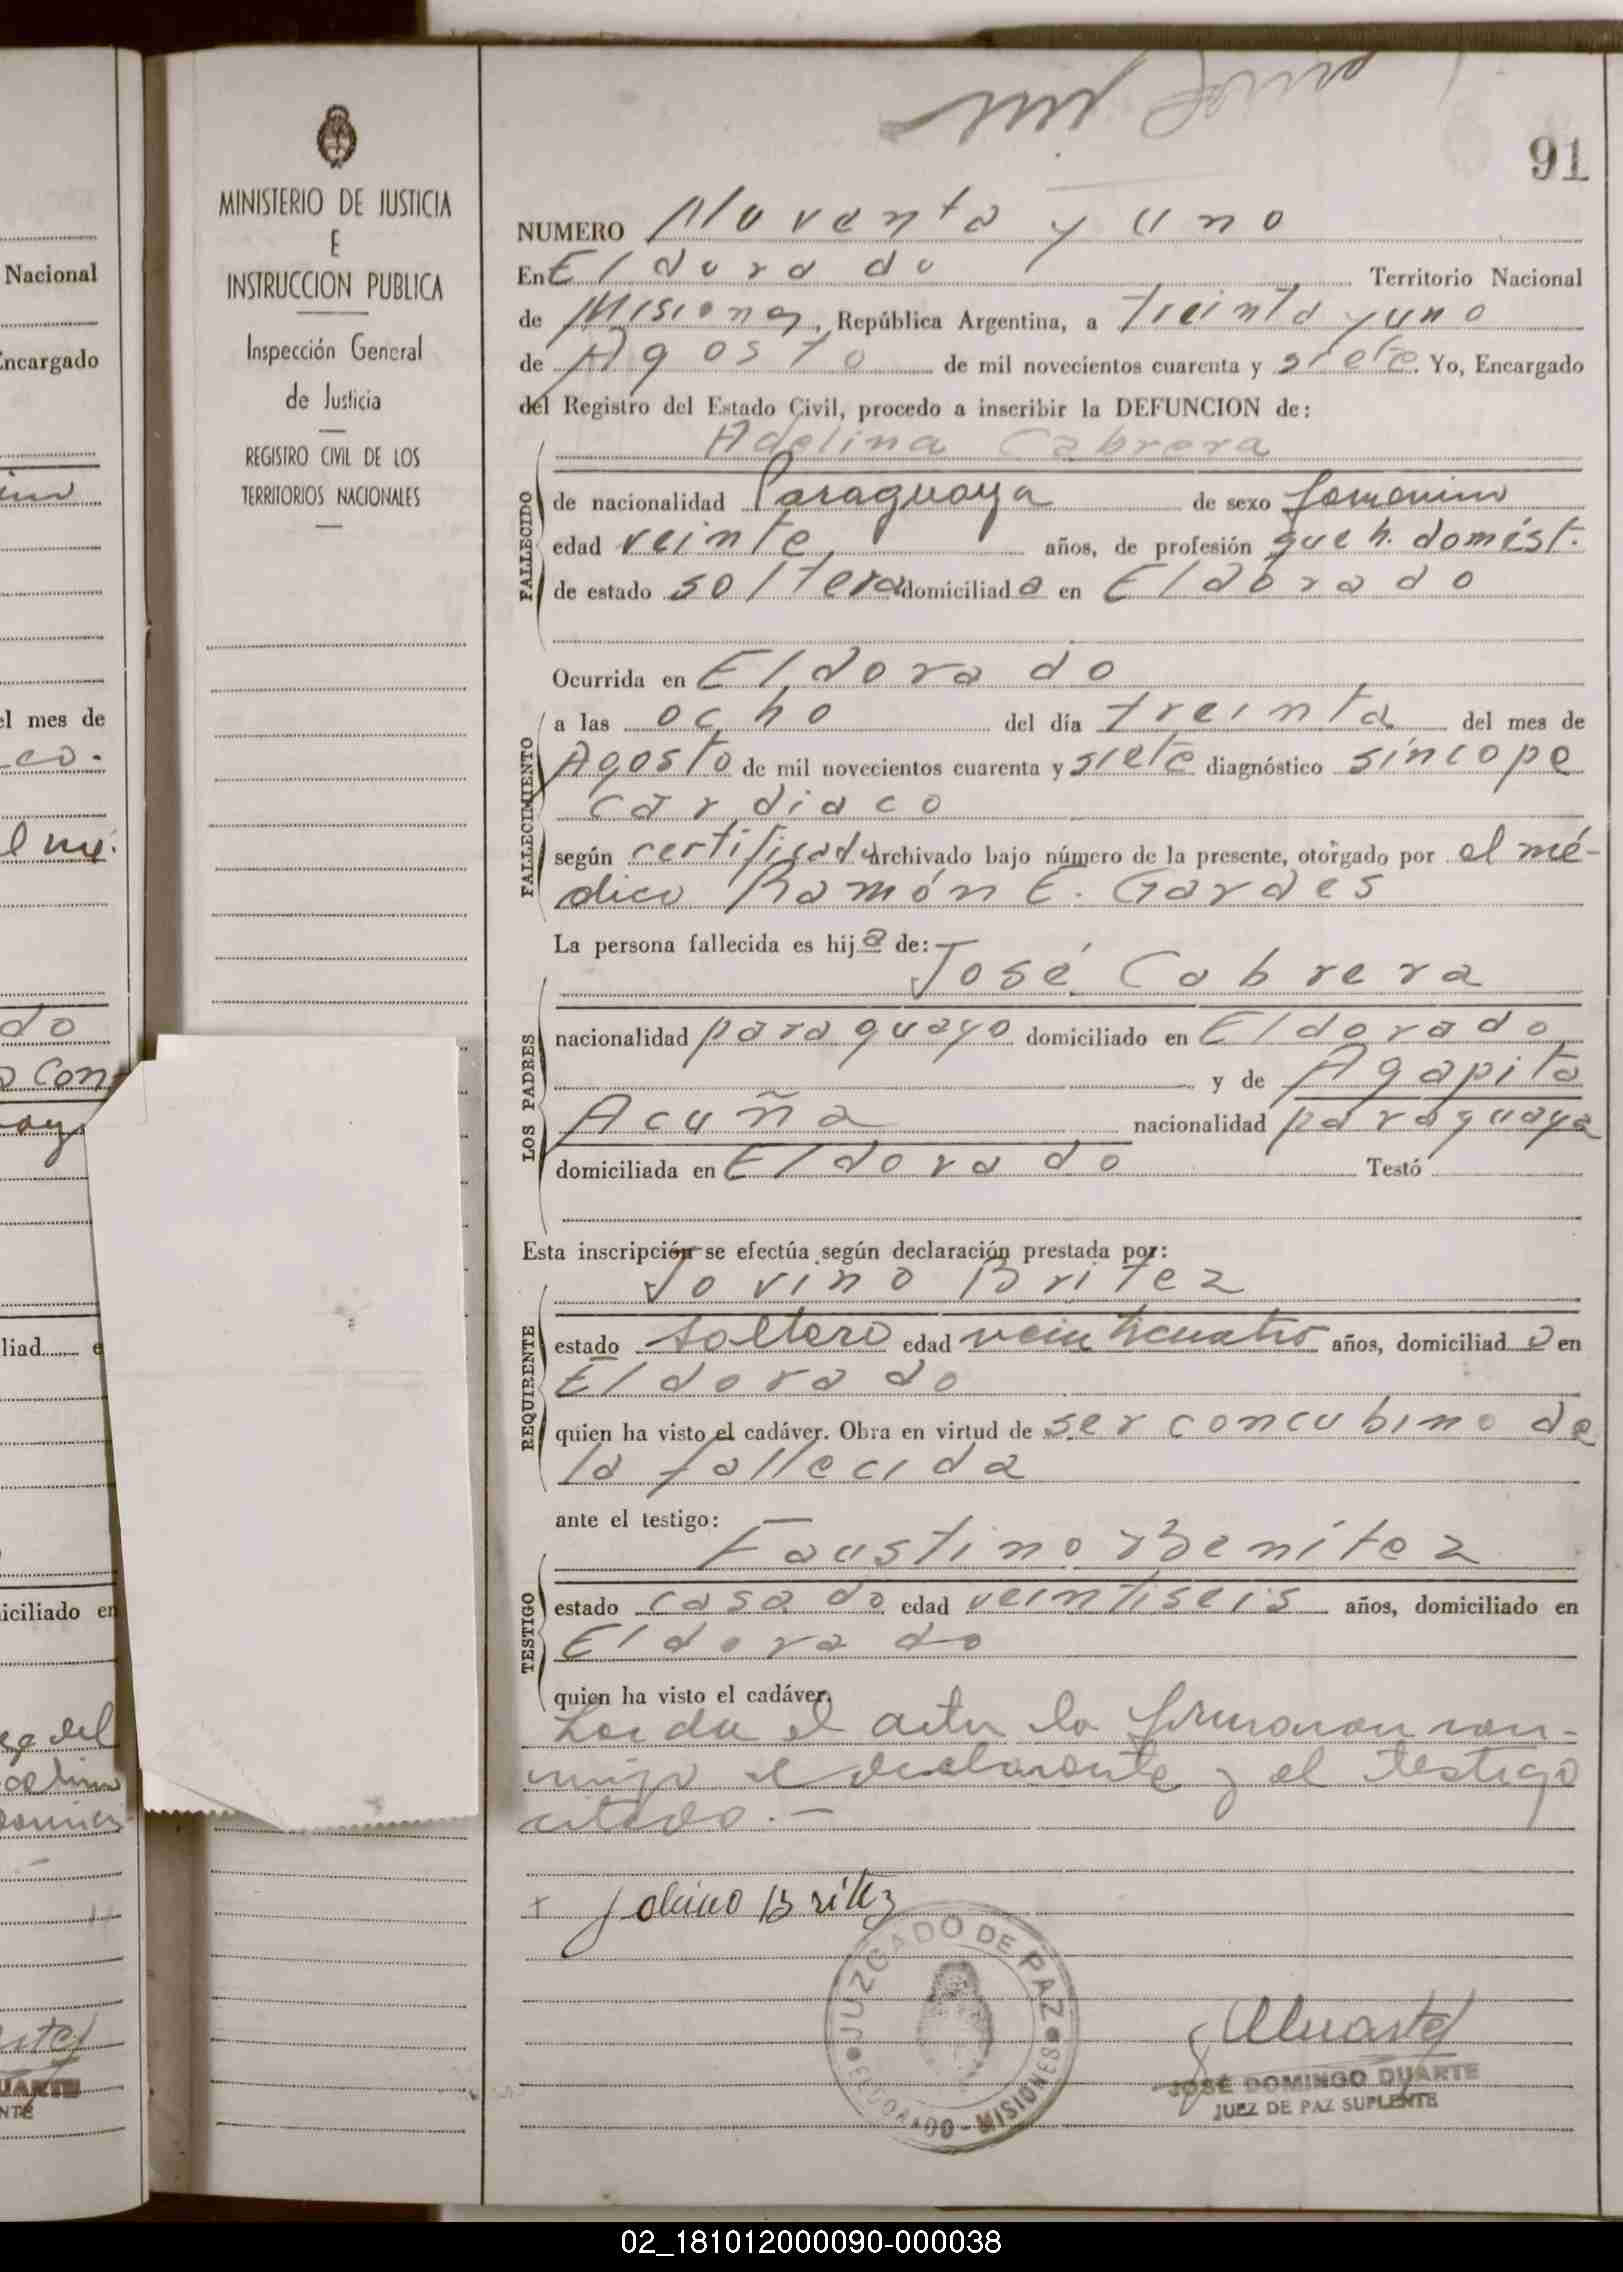 91
MINISTERIO DE JUSTICIA
E
INSTRUCCION PUBLICA
Inspección General
de Justicia
REGISTRO CIVIL DE LOS
TERRITORIOS NACIONALES
NUMERO Noventa y uno
En Eldorado Territorio Nacional
de Misiones, República Argentina, a treinta y uno
de Agosto de mil novecientos cuarenta y siete. Yo, Encargado
del Registro del Estado Civil, procedo a inscribir la DEFUNCION de:
Adelina Cabrera
FALLECIDO
de nacionalidad Paraguaya de sexo femenino
edad veinte años, de profesión queh. domést.
de estado soltera domiciliada en Eldorado
Ocurrida en Eldorado
FALLECIMIENTO
a las ocho del día treinta del mes de
Agosto de mil novecientos cuarenta y siete diagnóstico síncope
cardiaco
según certificado archivado bajo número de la presente, otorgado por el mé-
dico Ramón E. Gardes
La persona fallecida es hija de:
José Cabrera
LOS PADRES
nacionalidad paraguayo domiciliado en Eldorado
y de Agapita
Acuña nacionalidad paraguaya
domiciliada en Eldorado Testó
Esta inscripción se efectúa según declaración prestada por:
Jovino Britez
REQUIRENTE
estado soltero edad veinticuatro años, domiciliado en
Eldorado
quien ha visto el cadáver. Obra en virtud de ser concubino de
la fallecida
ante el testigo:
Faustino Benítez
TESTIGO
estado casado edad veintiseis años, domiciliado en
Eldorado
quien ha visto el cadáver.
Leida el acta la firmaron con-
migo el declarante y el testigo
citado.-
Jovino Britez
JUZGADO DE PAZ
ELDORADO - MISIONES
JOSÉ DOMINGO DUARTE
JUEZ DE PAZ SUPLENTE
Nacional
Encargado
el mes de
el mé.
do
con
liad
iciliado en
del
UARTE
NTE
02_181012000090-000038